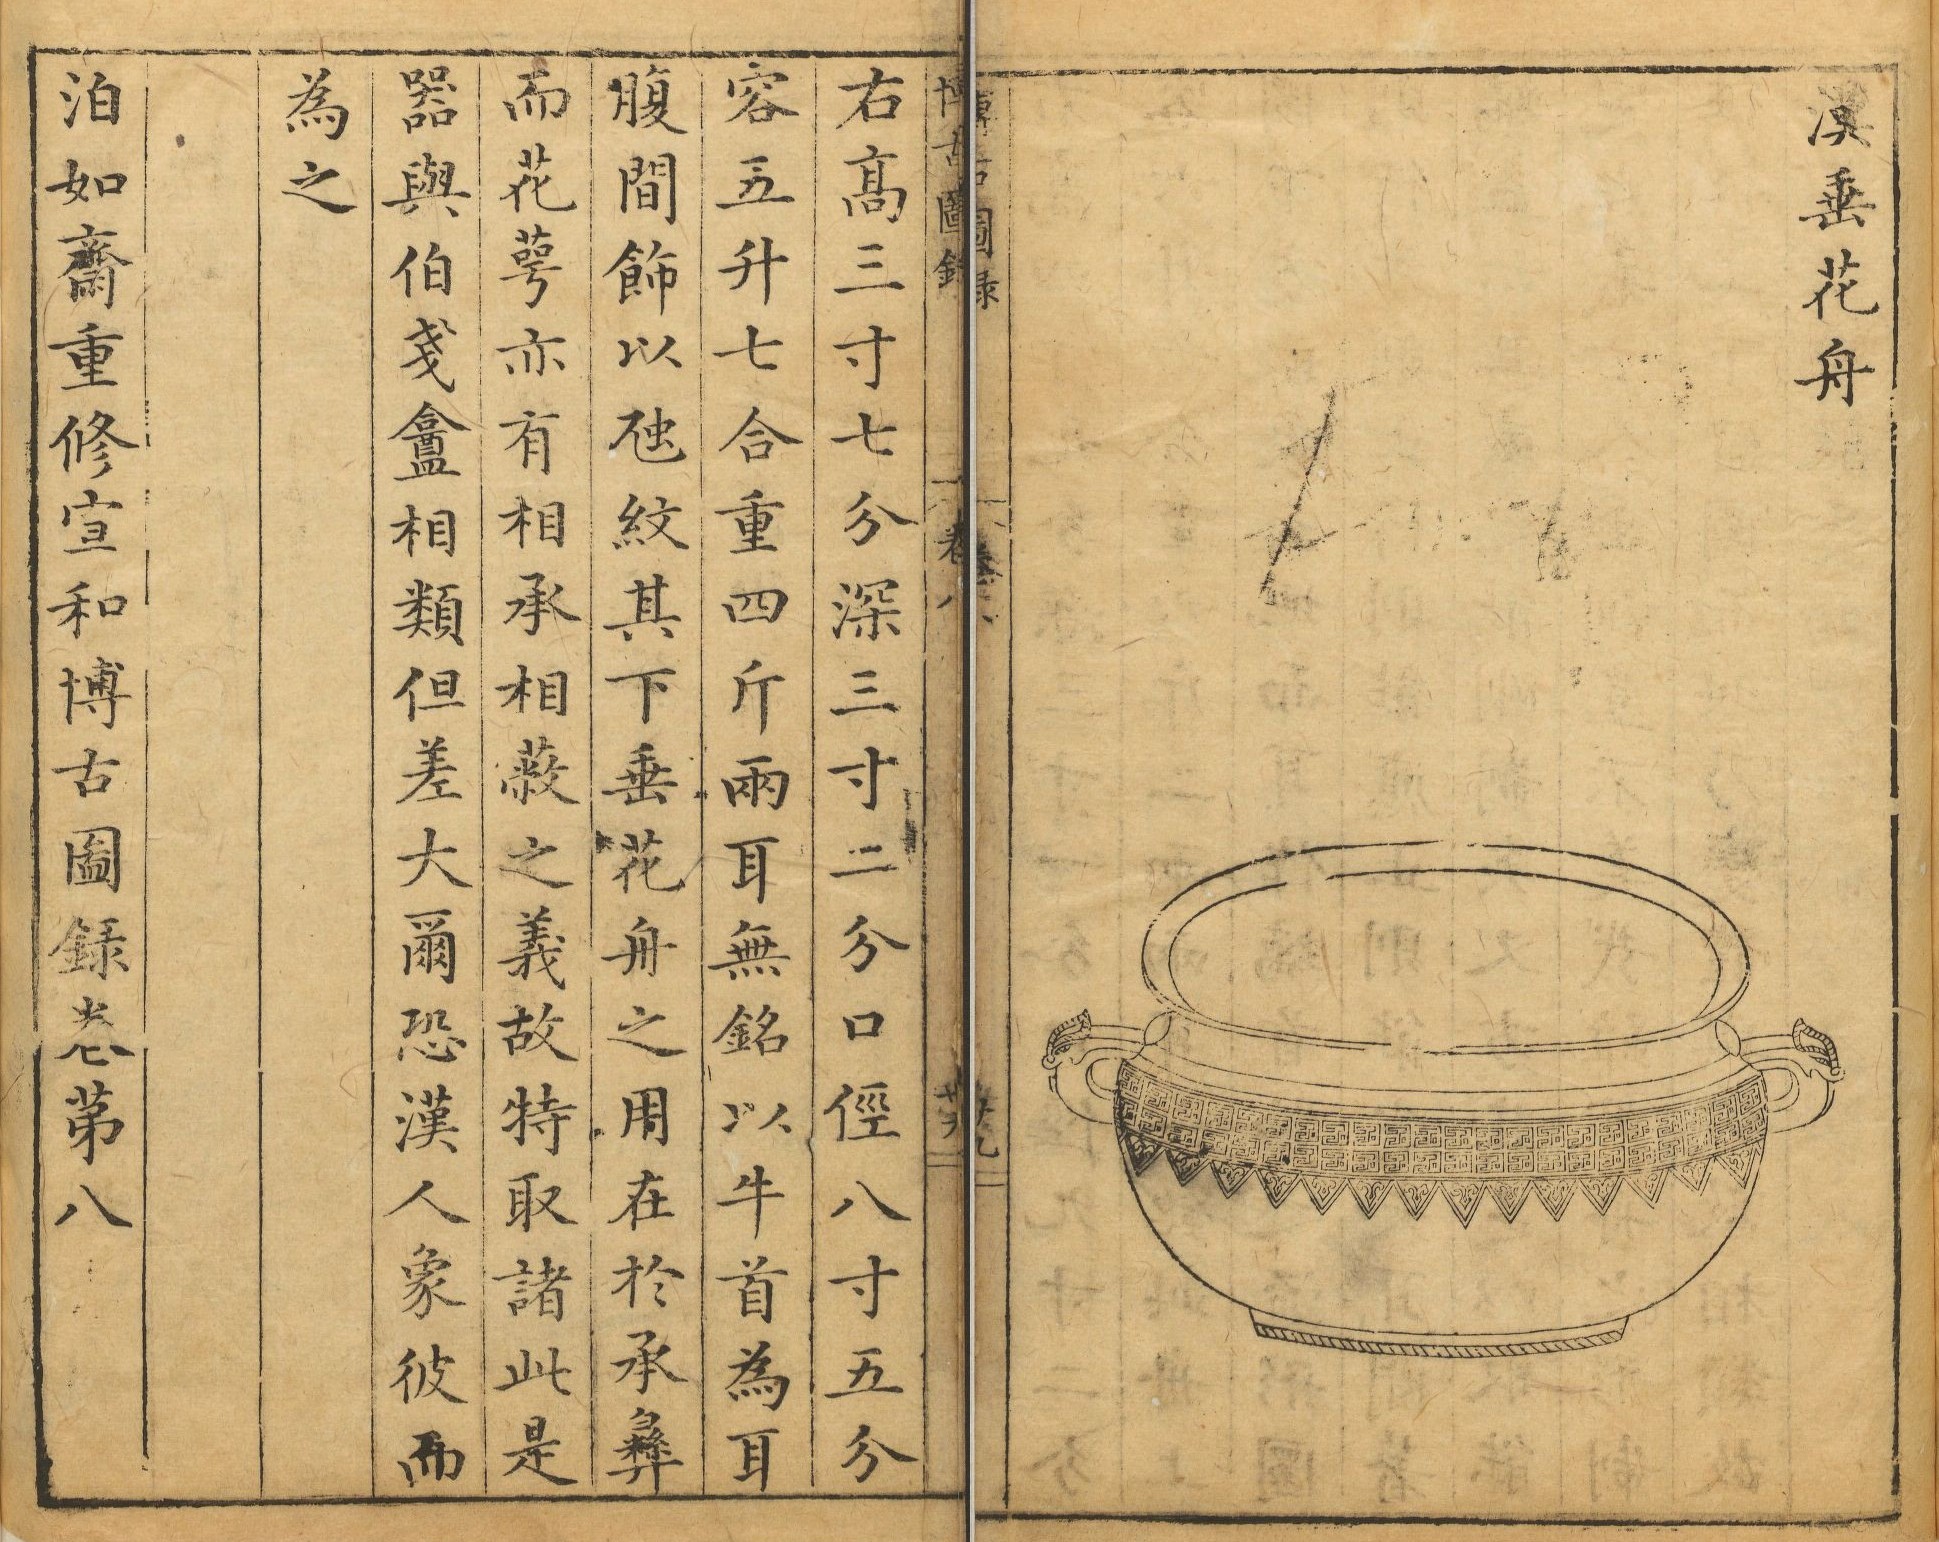 漢垂花舟
博古圖録 卷八
右髙三寸七分深三寸二分口徑八寸五分
容五升七合重四斤兩耳無銘以牛首為耳
腹間飾以虺紋其下垂花舟之用在於承彝
而花萼亦有相承相蔽之義故特取諸此是
器與伯戔盦相類但差大爾恐漢人象彼而
為之
泊如齋重修宣和博古圖録卷第八